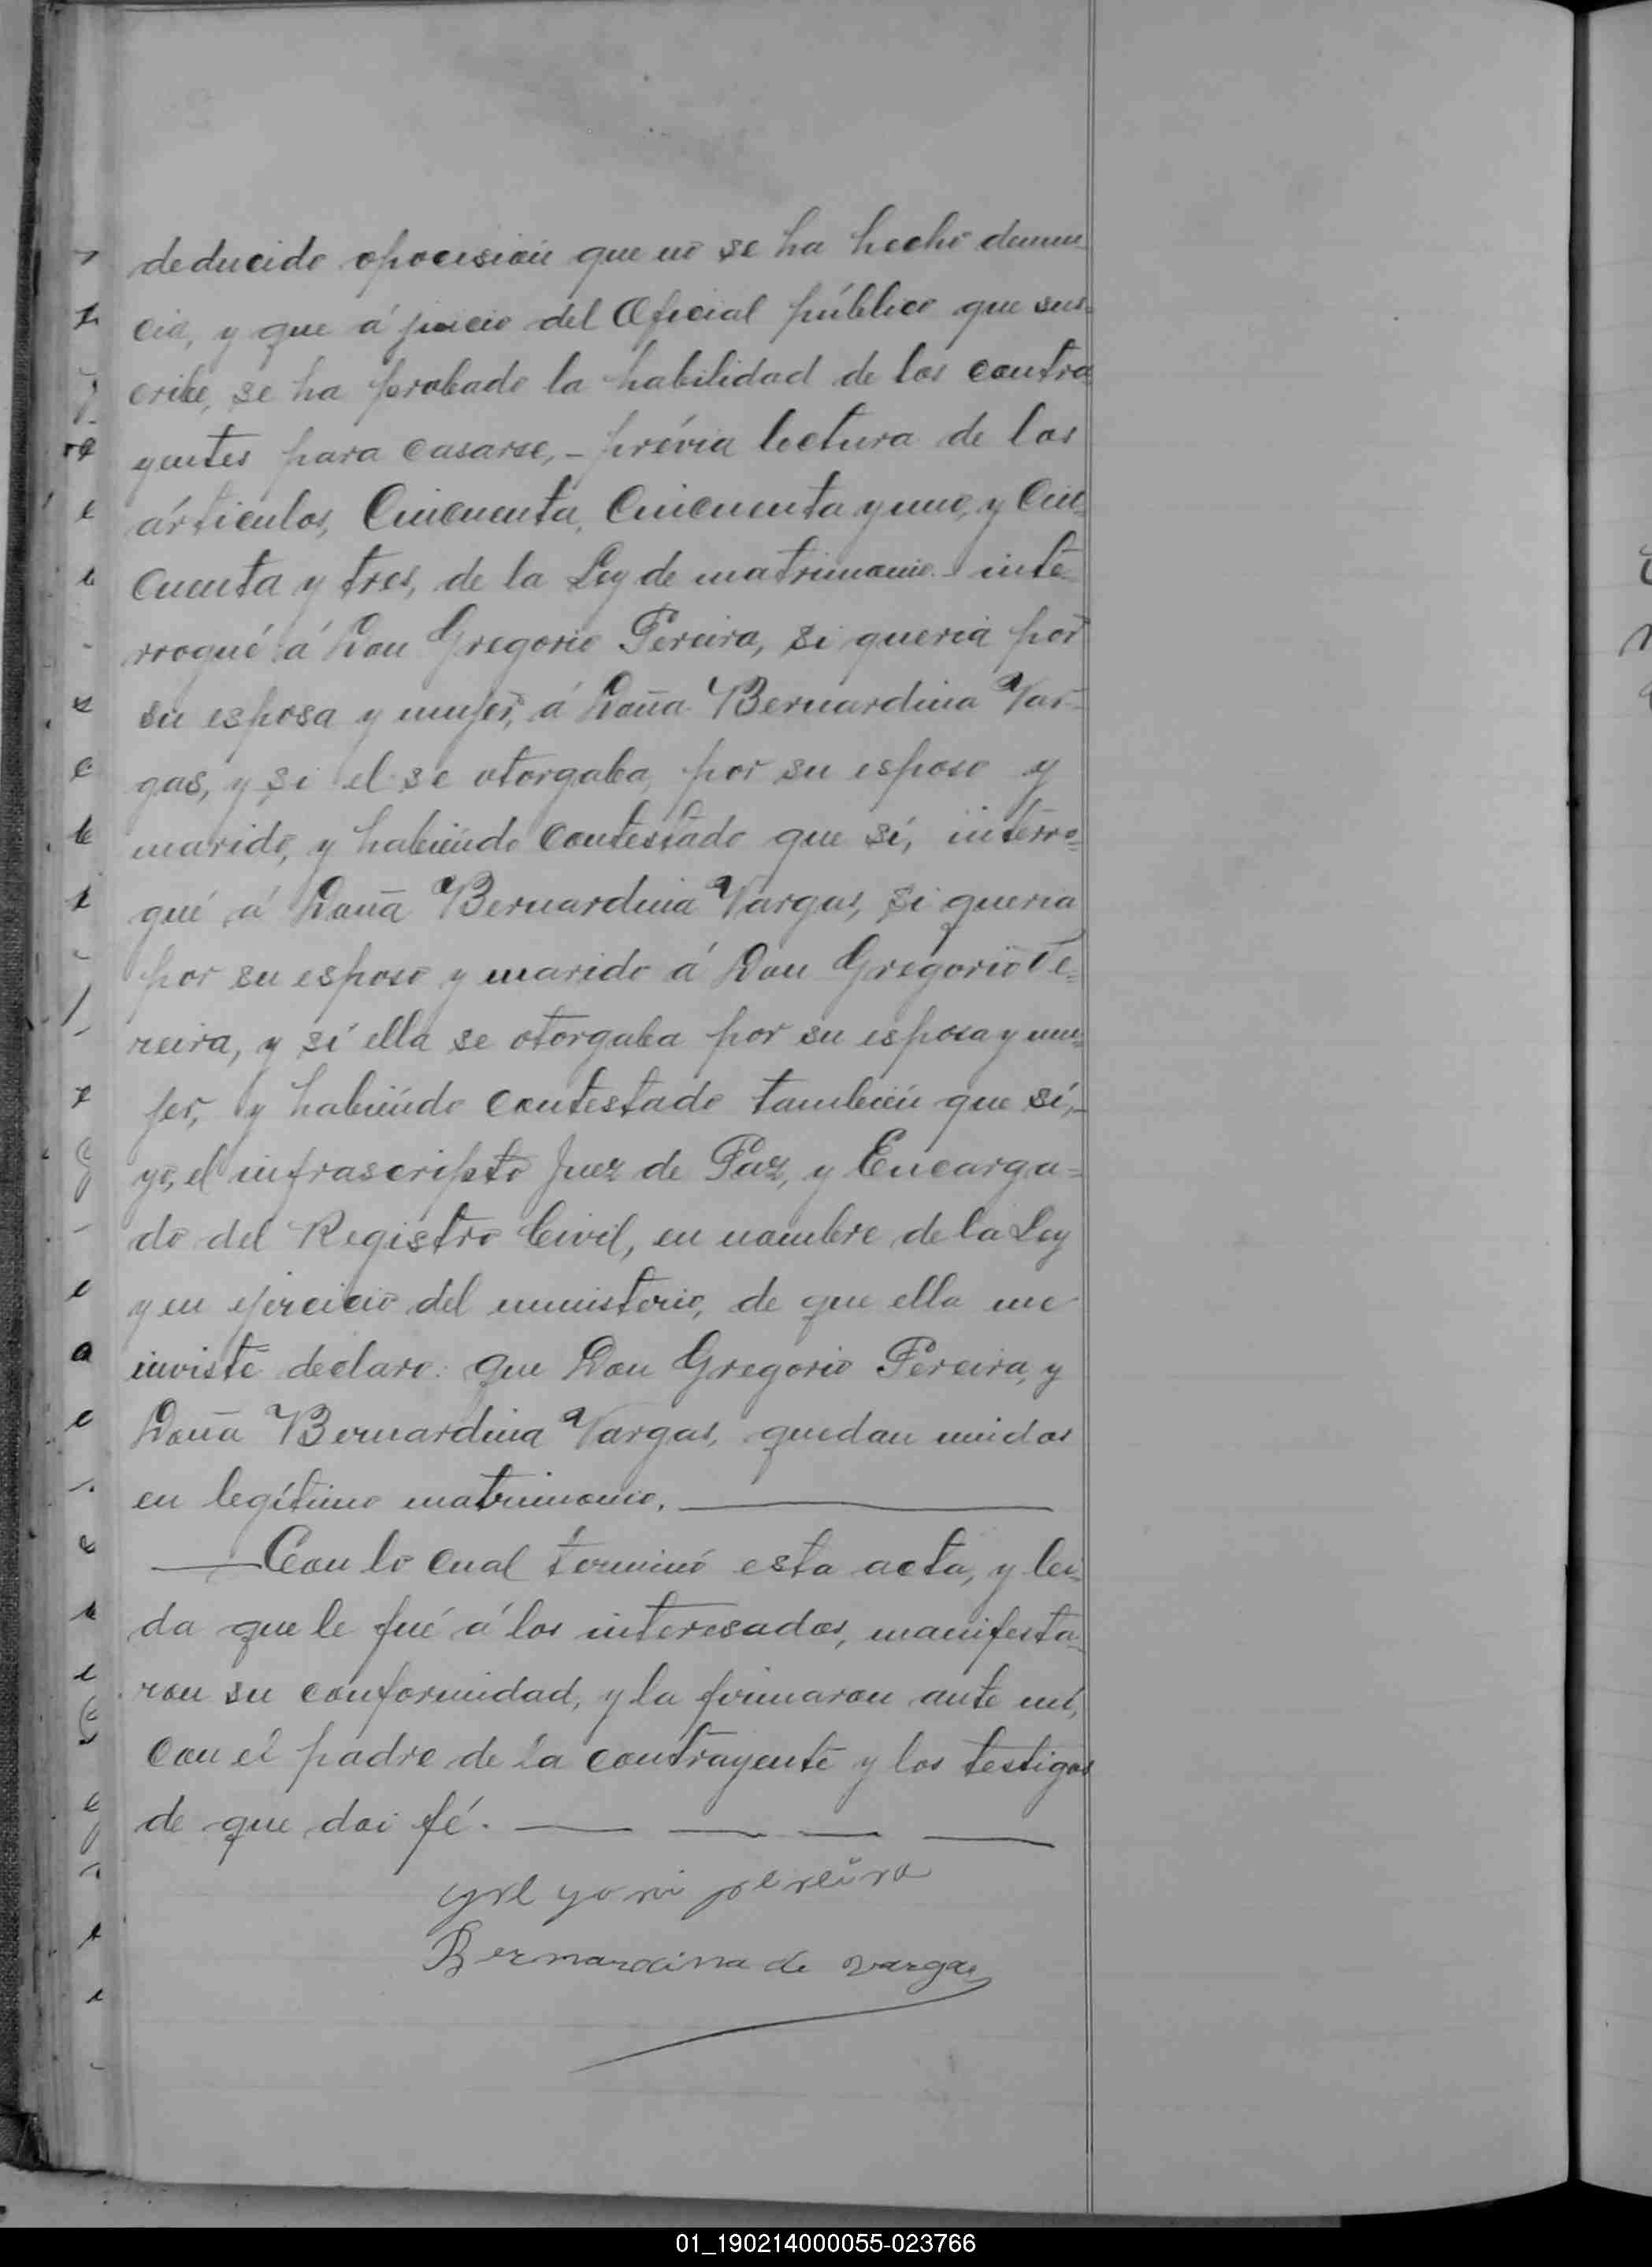 deducido opocision que no se ha hecho denun-
cia, y que á juicio del Oficial público que sus-
cribe, se ha probado la habilidad de los contra
yentes para casarse,- prévia lectura de los
árticulos, Cincuenta, Cincuenta y uno, y Cin-
cuenta y tres, de la Ley de matrimonio.- inte-
rrogué á Don Gregorio Pereira, si queria por
su esposa y mujer, á Doña Bernardina Var-
gas, y si el se otorgaba, por su esposo y
marido, y habiéndo contestado que sí, interro-
gué á Doña Bernardina Vargas, si queria
por su esposo y marido á Don Gregorio Pe-
reira, y sí ella se otorgaba por su esposa y mu-
jer, y habiéndo contestado también que sí,-
yo, el infrascripto Juez de Paz, y Encarga-
do del Registro Civil, en nombre de la Ley
y en ejercicio del ministerio, de que ella me
inviste declaro: que Don Gregorio Pereira, y
Doña Bernardina Vargas, quedan unidos
en legítimo matrimonio.
Con lo cual terminó esta acta, y lei-
da que le fué á los interesados, manifesta-
ron su conformidad, y la firmaron ante mí,
con el padre de la contrayente y los testigos
de que doi fé.
gre gori pereira
Bernardina de vargas
01_190214000055-023766